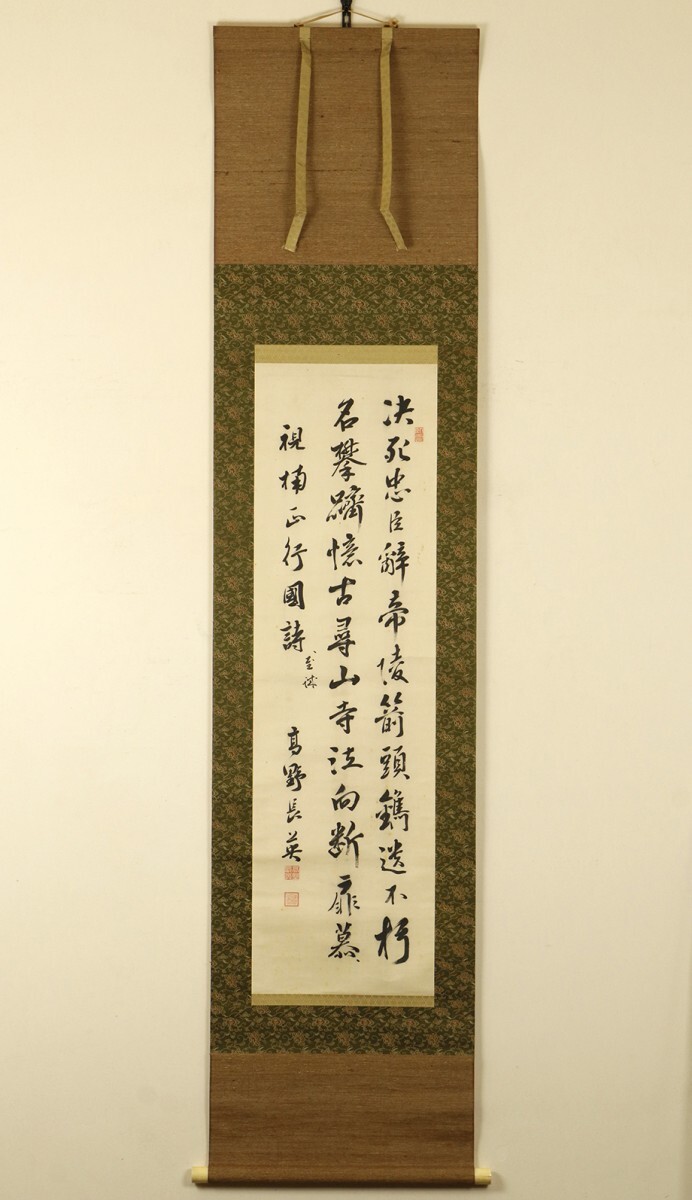 决死忠臣辭帝陵箭頭鐫遺不朽
名攀躋憶古尋山寺泣向断扉慕
視楠正行國詩
高野長英